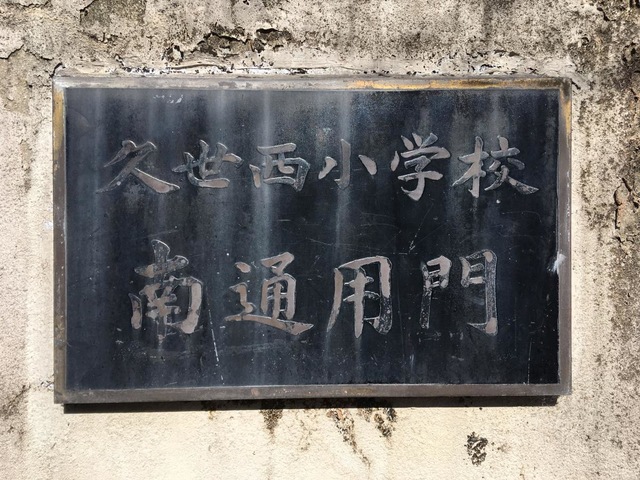 久世西小学校
南通用門